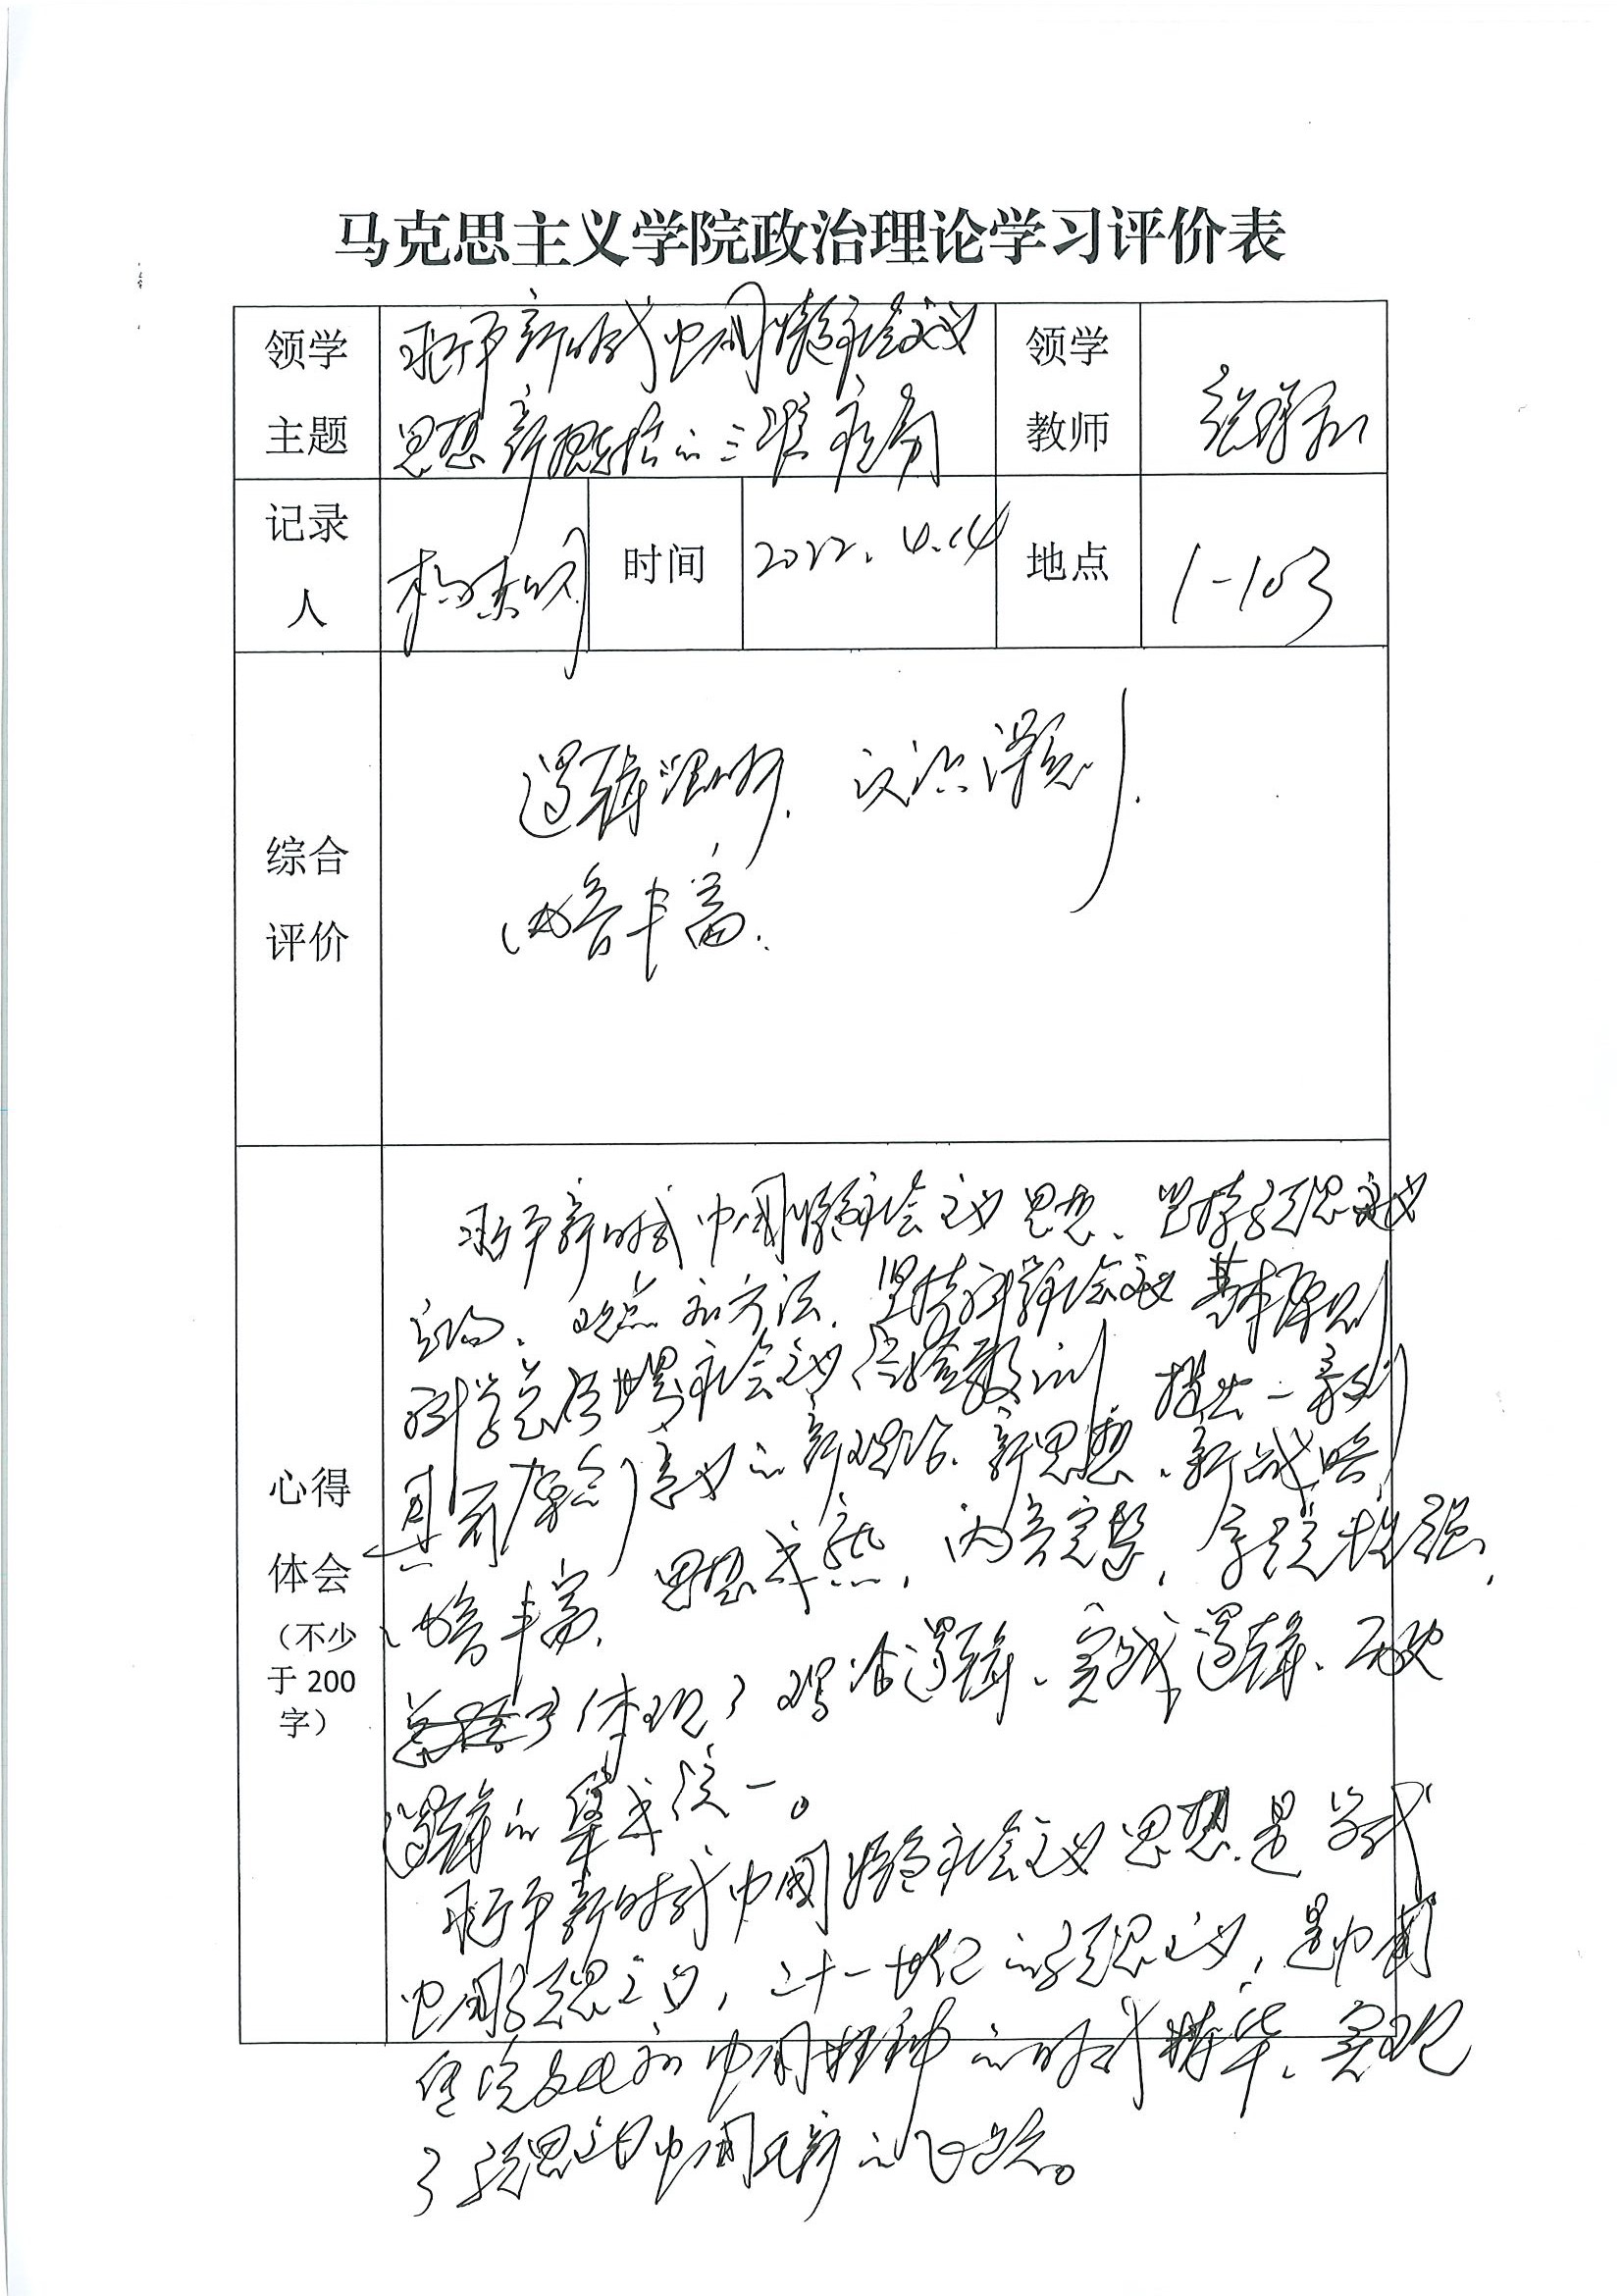 马克思主义学院政治理论学习评价表
领学主题
习近平新时代中国特色社会主义
思想新概括的三维
领学教师
记录人
杨
时间
2022.4.14
地点
1-103
综合评价
逻辑跟明. 认识深刻.
内容丰富.
心得体会
（不少于200字）
习近平新时代中国特色社会主义思想、坚持马克思主义
立场、观点和方法. 坚持科学社会主义基本原则
科学总结世界社会主义经验教训 提出一系列
具有原创意义的新理论、新思想、新战略
内容丰富, 思想成熟, 内容完整, 系统性强,
体现了理论逻辑、实践逻辑、历史
逻辑的集成统一。
习近平新时代中国特色社会主义思想是当代
中国马克思主义, 二十一世纪的马克思主义, 是中华
传统文化和中国精神的时代精华、实现
了马克思主义中国化新的飞跃。